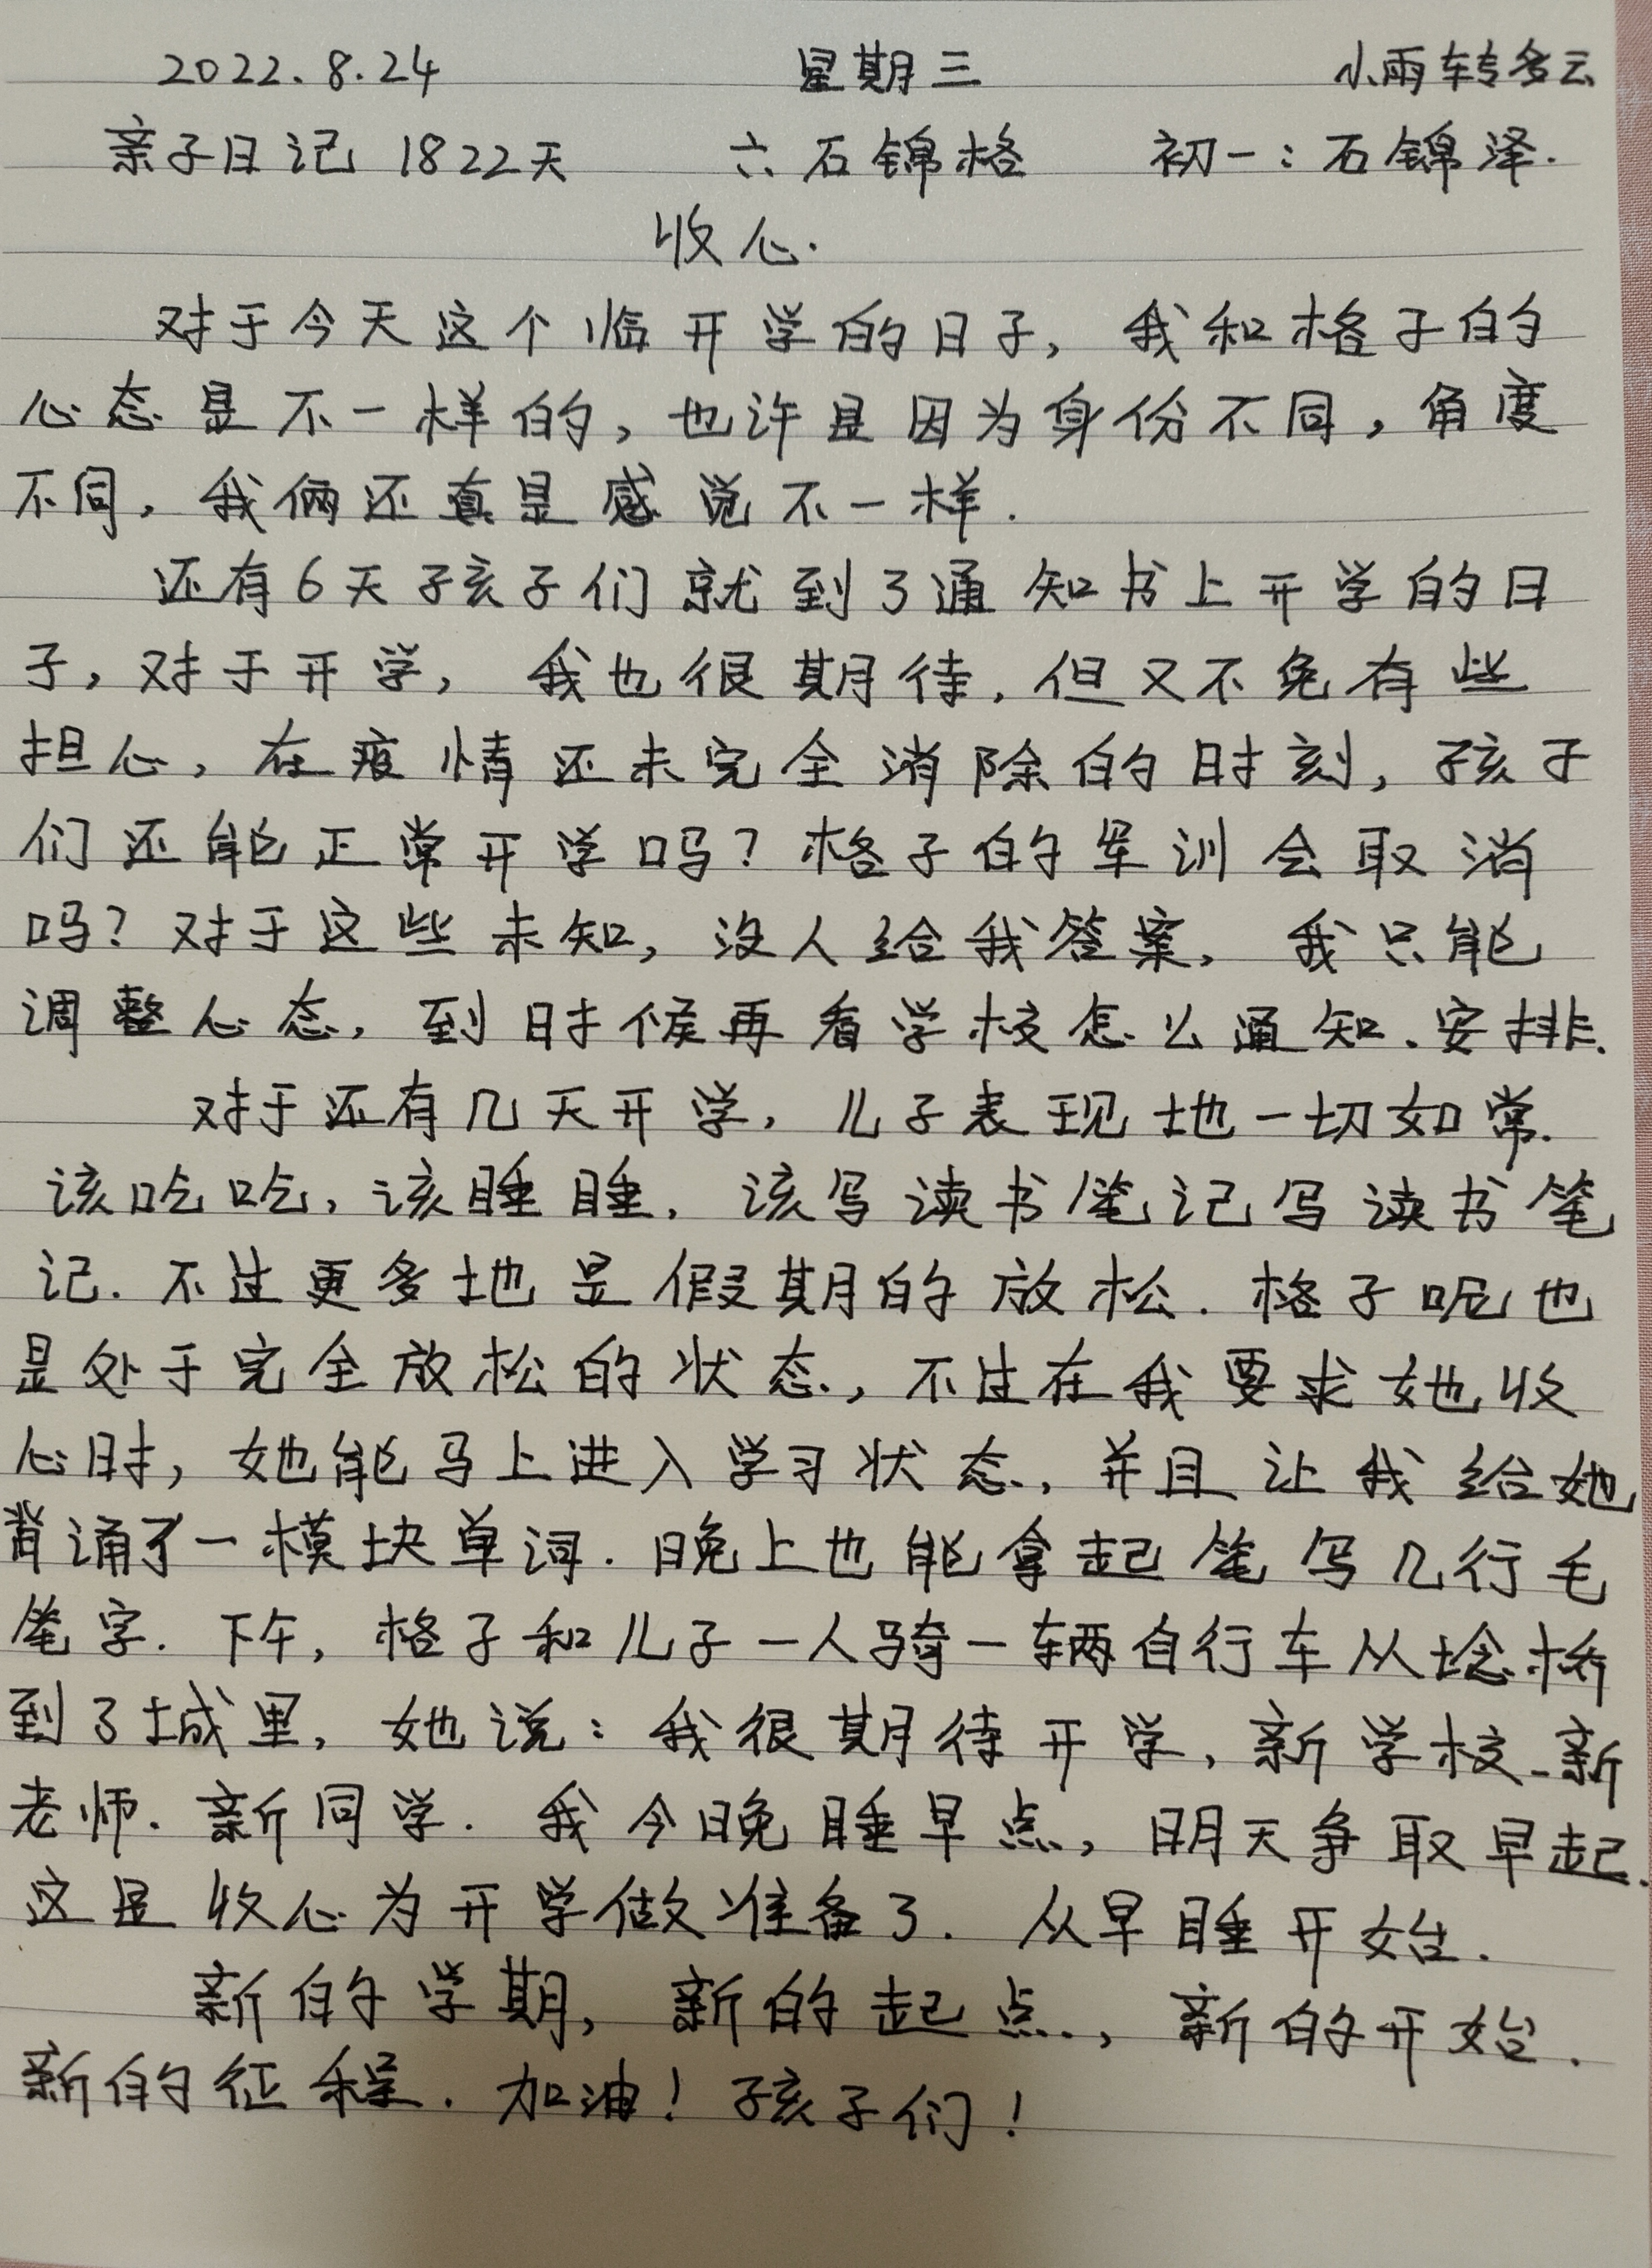 2022.8.24 星期三 小雨转多云
亲子日记 1822天 六石锦格 初一:石锦泽.
收心.
对于今天这个临开学的日子,我和格子的
心态是不一样的,也许是因为身份不同,角度
不同,我俩还真是感觉不一样.
还有6天孩子们就到了通知书上开学的日
子,对于开学,我也很期待,但又不免有些
担心,在疫情还未完全消除的时刻,孩子
们还能正常开学吗?格子的军训会取消
吗?对于这些未知,没人给我答案,我只能
调整心态,到时候再看学校怎么通知、安排.
对于还有几天开学,儿子表现地一切如常.
该吃吃,该睡睡,该写读书笔记写读书笔
记.不过更多地是假期的放松.格子呢也
是处于完全放松的状态,不过在我要求她收
心时,她能马上进入学习状态,并且让我给她
背诵了一模块单词.晚上也能拿起笔写几行毛
笔字.下午,格子和儿子一人骑一辆自行车从埝桥
到了城里,她说:我很期待开学,新学校、新
老师.新同学.我今晚睡早点,明天争取早起.
这是收心为开学做准备了.从早睡开始.
新的学期,新的起点,新的开始.
新的征程.加油!孩子们!